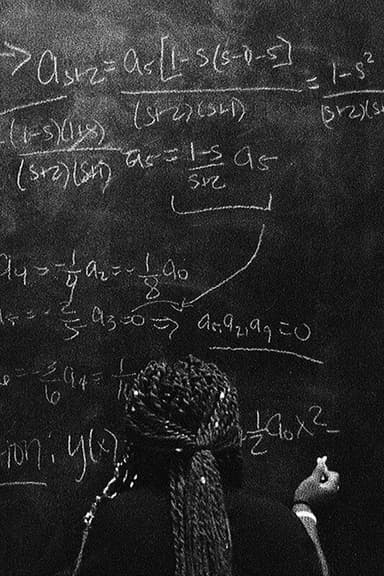 > aₛ₊₂ = aₛ[1-s(s-1)-s] / (s+2)(s+1) = 1-s² / (s+2)(s+
(1-s)(1+s) / (s+2)(s+1) aₛ = 1-s / s+2 aₛ
a₄ = -1/4 a₂ = -1/8 a₀
= -2/5 a₃ = 0 ⇒ a₅, a₇, a₉ = 0
= -3/6 a₄ = 1/1
ion: y(x) +1/2 a₀x² -